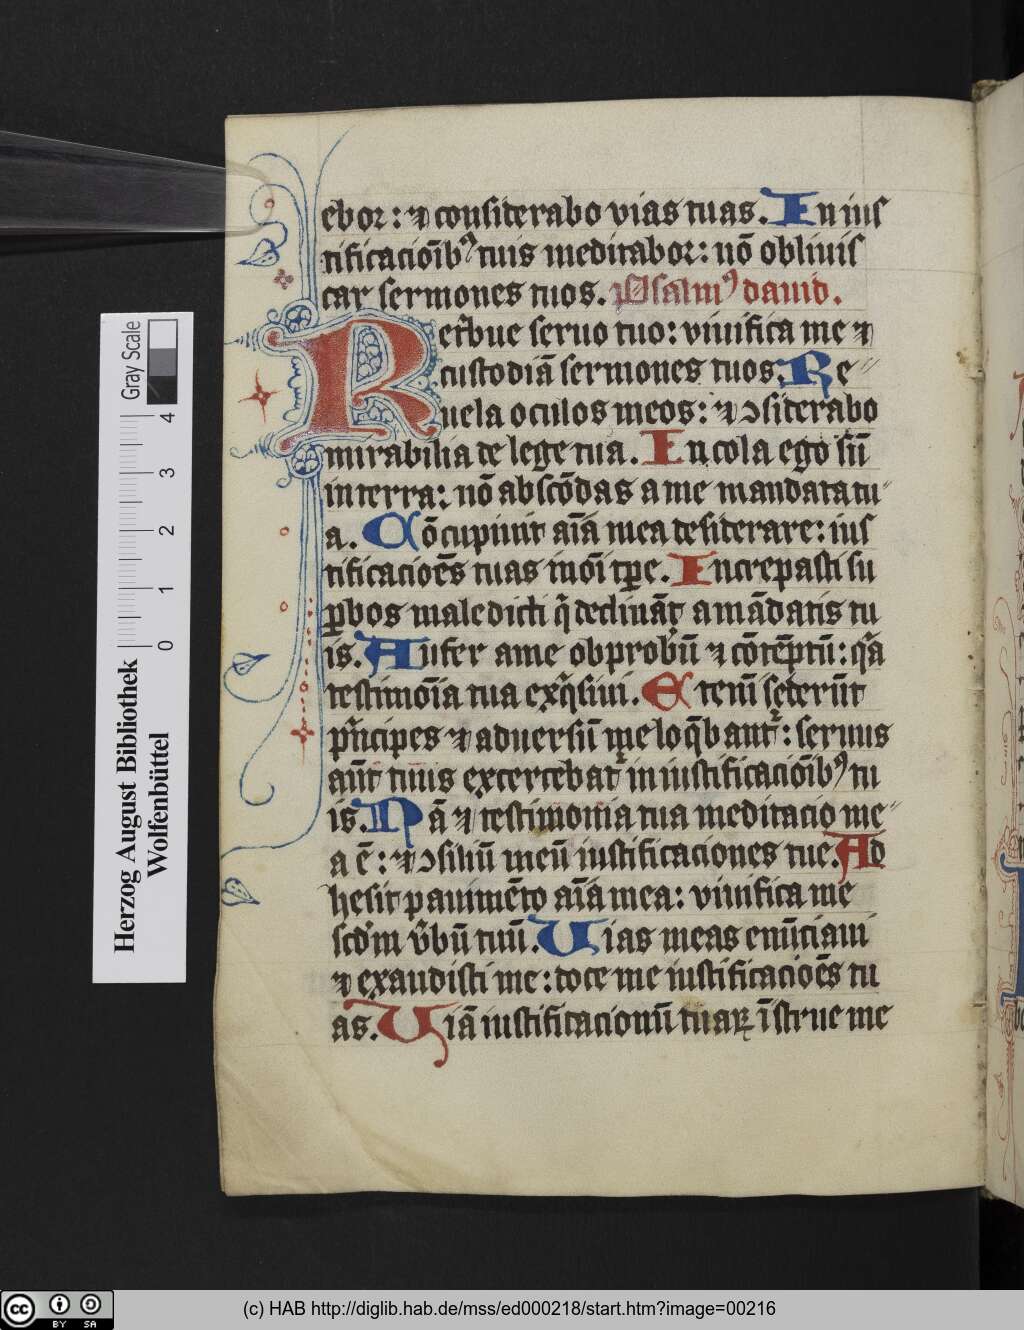 ebor: ⁊ considerabo vias tuas. In ius
tificacioīb⁹ tuis meditabor: nō obliuis
car sermones tuos. Psalm⁹ dauid.
Retͥbue seruo tuo: viuifica me ⁊
custodiā sermones tuos. Re
uela oculos meos: ⁊ ↄsiderabo
mirabilia de lege tua. Incola ego sū
in terra: nō abscōdas a me mandata tu
a. Cōcupiuit aīa mea desiderare: ius
tificacioēs tuas in oī tꝑe. Increpasti su
ꝑbos maledicti q̄ declināt amādatis tu
is. Aufer ame obprobū ⁊ cōtēptū: qͣa
testimoīa tua exqͥsiui. Etenī sederūt
pͥncipes ⁊ aduersū me loq̄bant᷑: seruus
aūt tuus excercebat᷑ in iustificacioīb⁹ tu
is. Nā ⁊ testimonia tua meditacio me
a ē: ⁊ ↄsiliū meū iustificaciones tue. Ad
hesit pauimēto aīa mea: viuifica me
scd̓m v̓bū tuū. Uias meas enūciaui
⁊ exaudisti me: doce me iustificacioēs tu
as. Uiā iustificacionū tuaꝝ īstrue me
Herzog August Bibliothek
Wolfenbüttel
0 1 2 3 4
Gray Scale
cc BY SA
(c) HAB http://diglib.hab.de/mss/ed000218/start.htm?image=00216